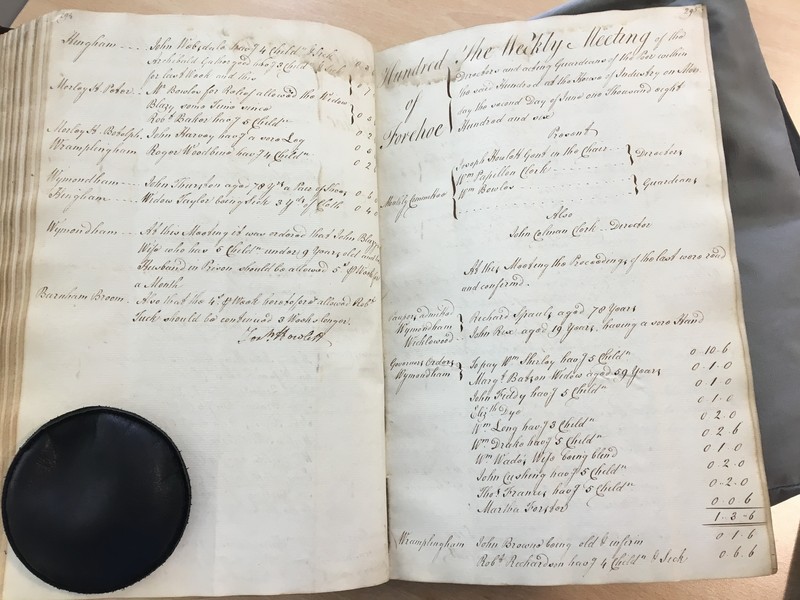 Hingham ---- John Websdale hav.g 4 Child.n & Sick
Archibald Gathergood hav.g 3 Child.n
for last Week and this
Morley St. Peter . M.r Bowles for Relief allowed the Widow
Blazy some Time since
Rob.t Baker hav.g 5 Child.n
Morley St. Botolph . John Harvey hav.g a sore Leg
Wramplingham Roger Woodbine hav.g 4 Child.n
Wymondham --- John Thurston aged 78 Y.rs a Pair of Shoes
Hingham --- Widow Taylor being Sick 3 Y.ds of Cloth
Wymondham --- At this Meeting it was ordered that John Blazy's
Wife who has 5 Child.n under 9 Years old and
Husband in Prison should be allowed 5.s P Week for
a Month
Barnham Broom . Also that the 4.s P Week heretofore allowed Rob.t
Tuck should be continued 3 Weeks longer.
Jos.h Howlett
295
Hundred
of
Forehoe
The Weekly Meeting of the
Directors and acting Guardians of the Poor within
the said Hundred at the House of Industry on Mon
day the second Day of June one Thousand eight
Hundred and six
Present
Weekly Committee
Joseph Howlett Gent in the Chair
W.m Papillon Clerk
Directors
W.m Bowles
Guardians
Also
John Colman Clerk -- Director
At this Meeting the Proceedings of the last were read
and confirmed.
Paupers admitted
Wymondham Richard Spaul aged 70 Years
Wicklewood John Rix aged 19 Years, having a sore Hand
Governors Orders
Wymondham
To pay W.m Shirley hav.g 5 Child.n 0 .. 10 .. 6
Marg.t Batson Widow aged 59 Years 0 .. 1 .. 0
John Fiddy hav.g 5 Child.n 0 .. 1 .. 0
Eliz.th Dye 0 .. 1 .. 0
W.m Long hav.g 3 Child.n 0 .. 2 .. 0
W.m Drake hav.g 5 Child.n 0 .. 2 .. 6
W.m Wade's Wife being blind 0 .. 1 .. 0
John Cushing hav.g 5 Child.n 0 .. 2 .. 0
Tho.s Francis hav.g 5 Child.n 0 .. 2 .. 0
Martha Forster 0 .. 0 .. 6
1 .. 3 .. 6
Wramplingham John Browne being old & infirm 0 .. 1 .. 6
Rob.t Richardson hav.g 4 Child.n & Sick 0 .. 6 .. 6